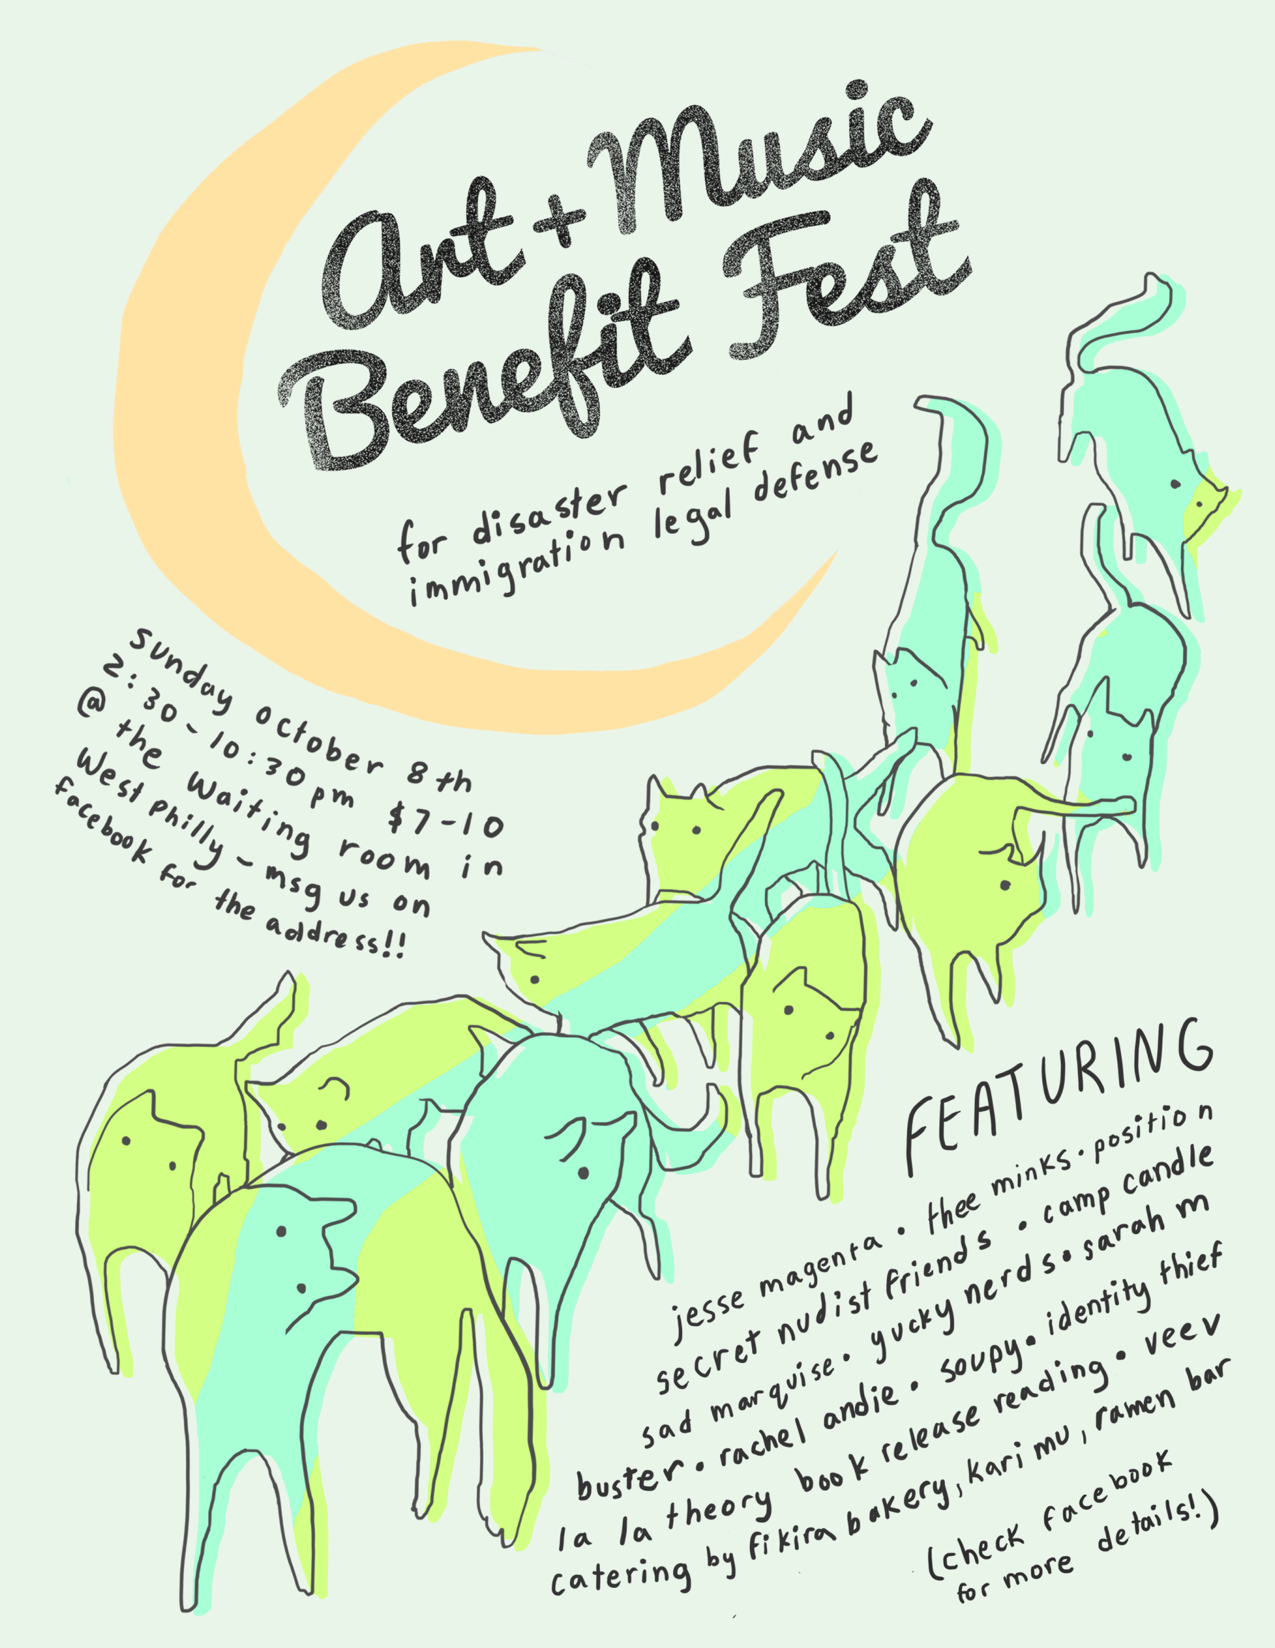 Art + Music
Benefit Fest
for disaster relief and
immigration legal defense
Sunday october 8th
2:30-10:30pm $7-10
@ the waiting room in
West philly - msg us on
facebook for the address!!
FEATURING
jesse magenta • thee minks • position
secret nudist friends • camp candle
sad marquise • yucky nerds • sarah m
buster • rachel andie • soupy • identity thief
la la theory book release reading • veev
catering by fikira bakery, kari mu, ramen bar
(check facebook
for more details!)